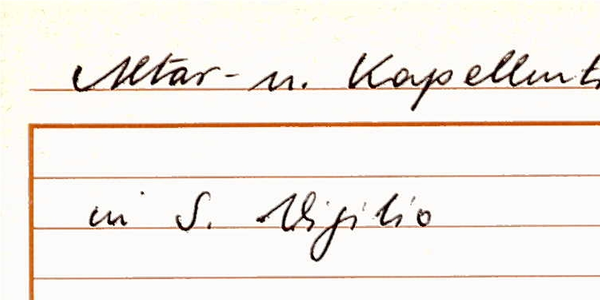 Altar- u. Kapellent
in S. Vigilio